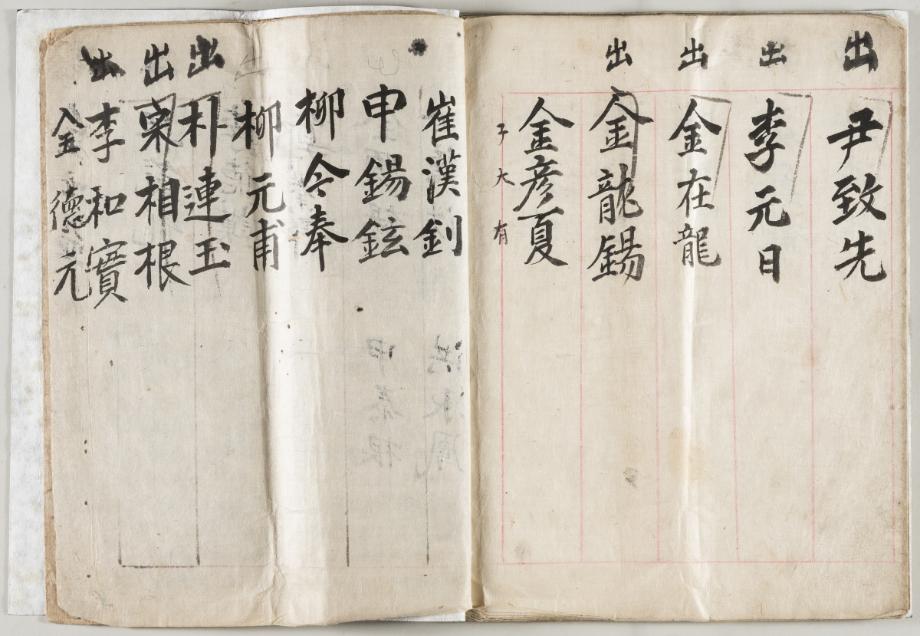 出 尹致先
出 李元日
出 金在龍
出 金龍錫
金彦夏
子大有
崔漢釗
申錫鉉
柳令奉
柳元甫
出 朴連玉
出 相根
出 李和實
金德元